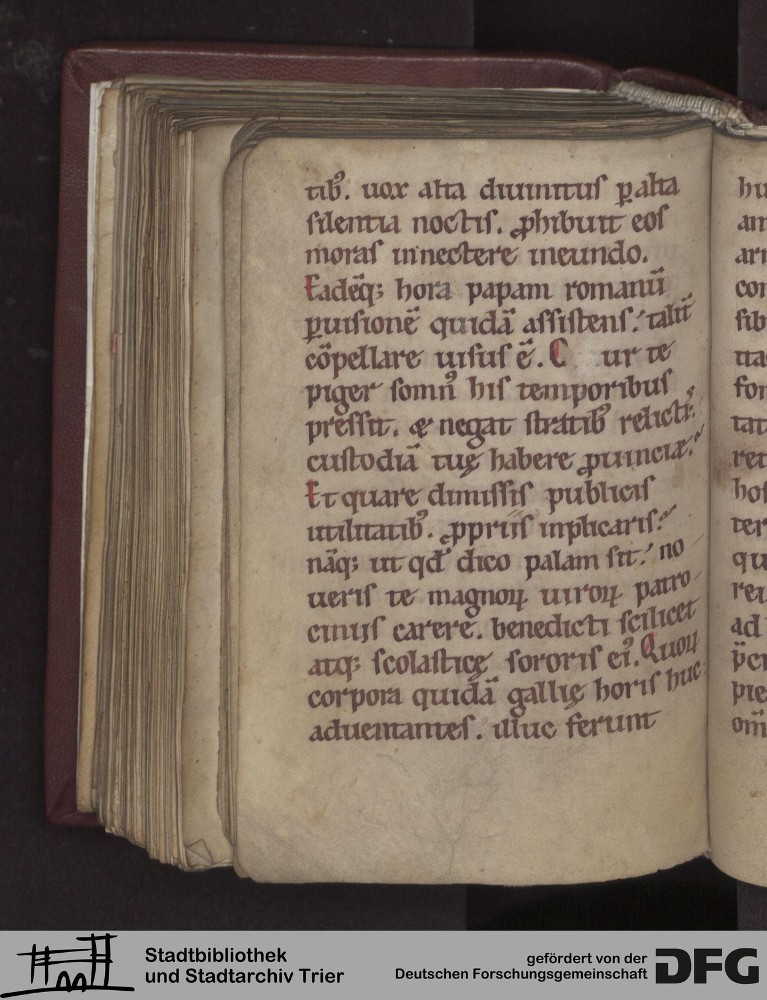 tibꝰ. uox alta diuinitus ꝑ alta
silentia noctis. ꝓhibuit eos
moras innectere ineundo.
Eadēq; hora papam romanū
ꝑuisionē quidā assistens. talit̄
cōpellare uisus ē. C ur te
piger somnꝰ his temporibus
pressit. & negat stratibꝰ relictis.
custodiā tuę habere ꝓuincię.
Et quare dimissis publicis
utilitatibꝰ. ꝓpriis inplicaris.
nāq; ut qđ dico palam sit. no
ueris te magnoꝝ uiroꝝ patro
ciniis carere. benedicti scilicet
atq; scolasticę sororis eiꝰ. Quoꝝ
corpora quidā gallię horis huc
aduentantes. illuc ferunt
hu
an
arr
con
sib
tta
for
tat
ret
hos
ter
qu
reu
ad
pie
om̄
Stadtbibliothek
und Stadtarchiv Trier
gefördert von der
Deutschen Forschungsgemeinschaft
DFG